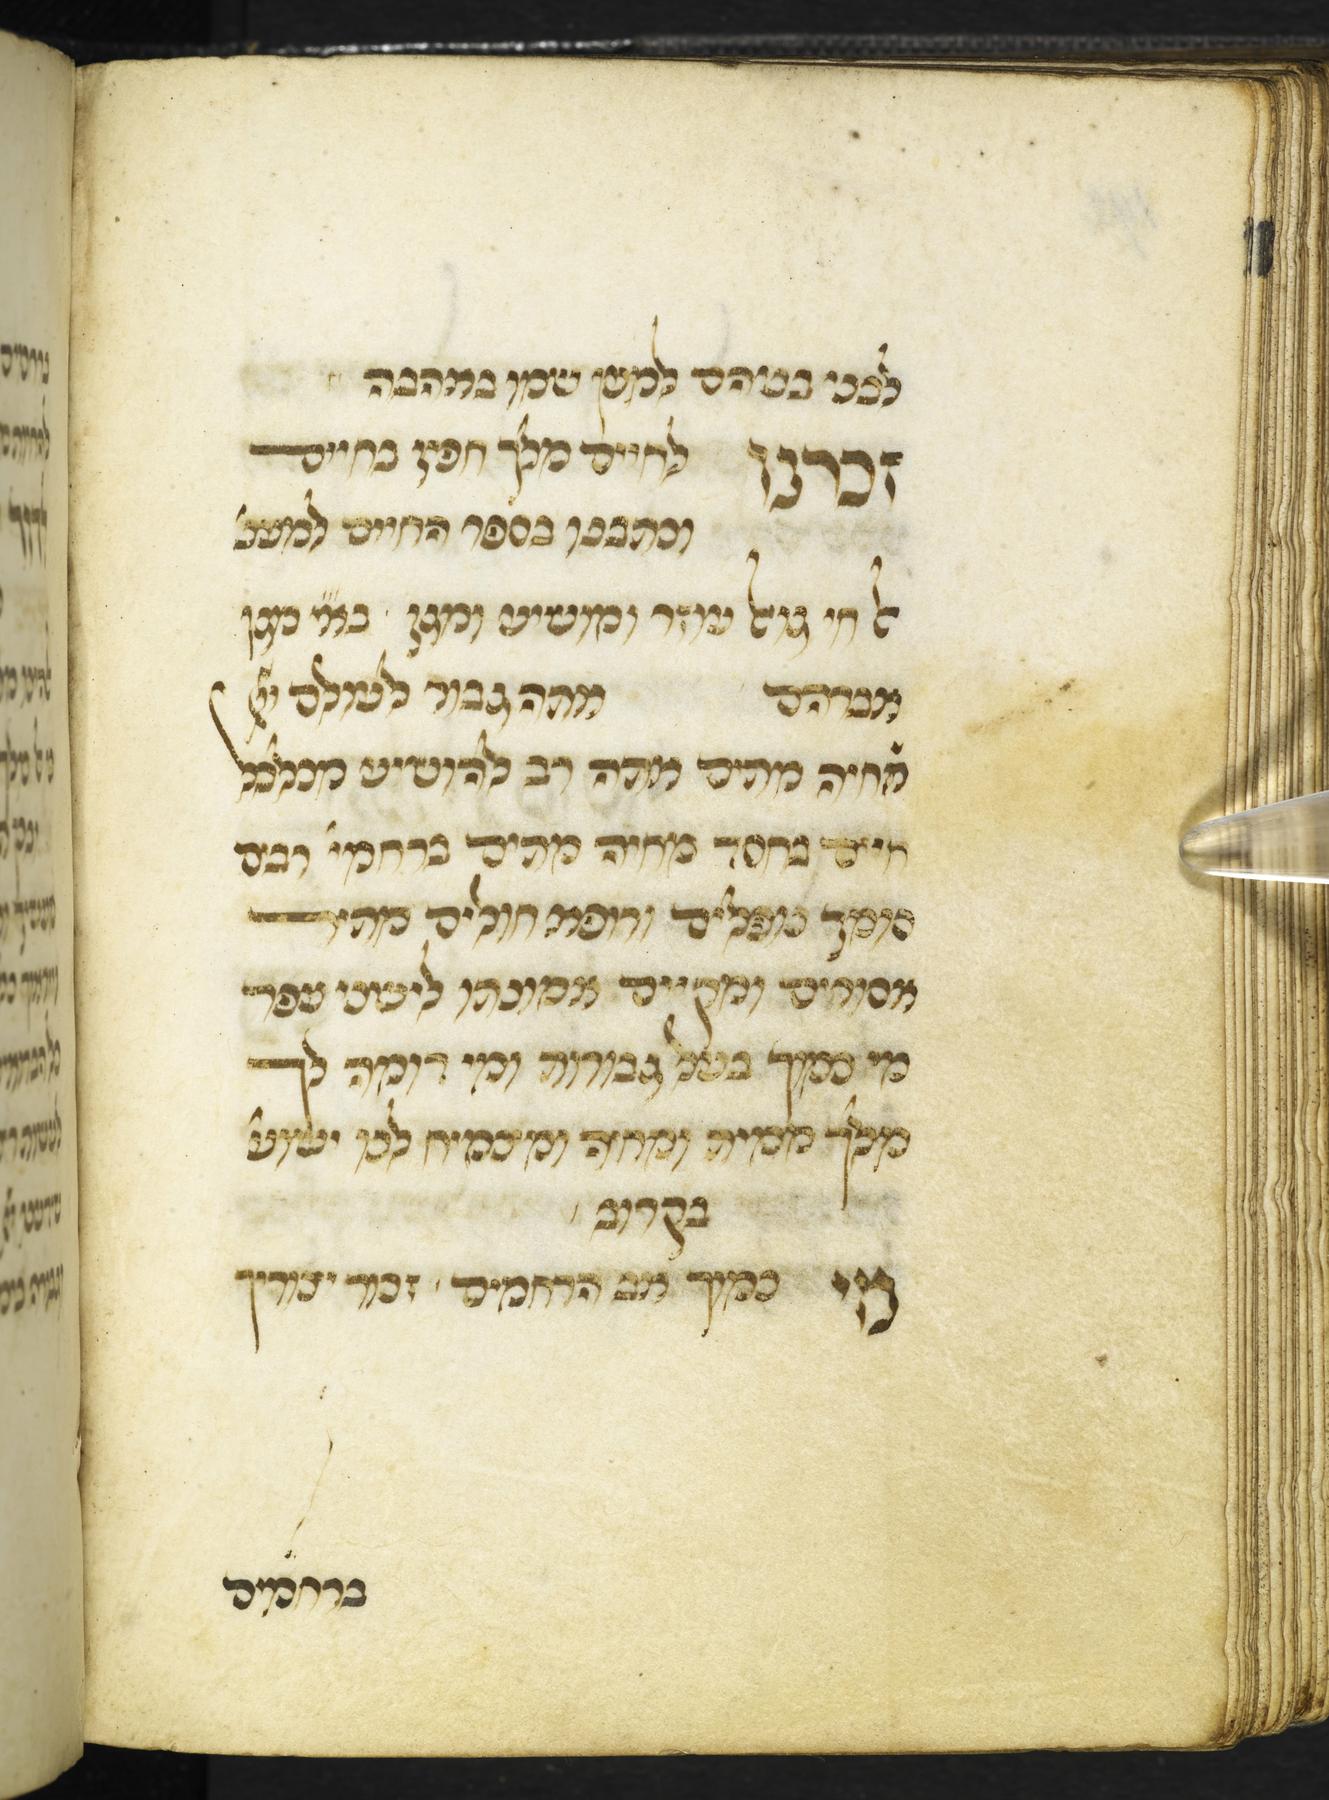 לבני בניהם למען שמו באהבה
זכרנו לחיים מלך חפץ בחיים
וכתבנו בספר החיים למענ'
אל חי גואל עוזר ומושיע ומגן בא"י מגן
אברהם אתה גבור לעולם יי'
מחיה מתים אתה רב להושיע מכלכל
חיים בחסד מחיה מתים ברחמי' רבים
סומך נופלים ורופא חולים מתיר
אסורים ומקיים אמונתו לישני עפר
מי כמוך בעל גבורות ומי דומה לך
מלך ממית ומחיה ומצמיח לנו ישוע'
בקרוב
מי כמוך אב הרחמים זכור יצוריך
ברחמים